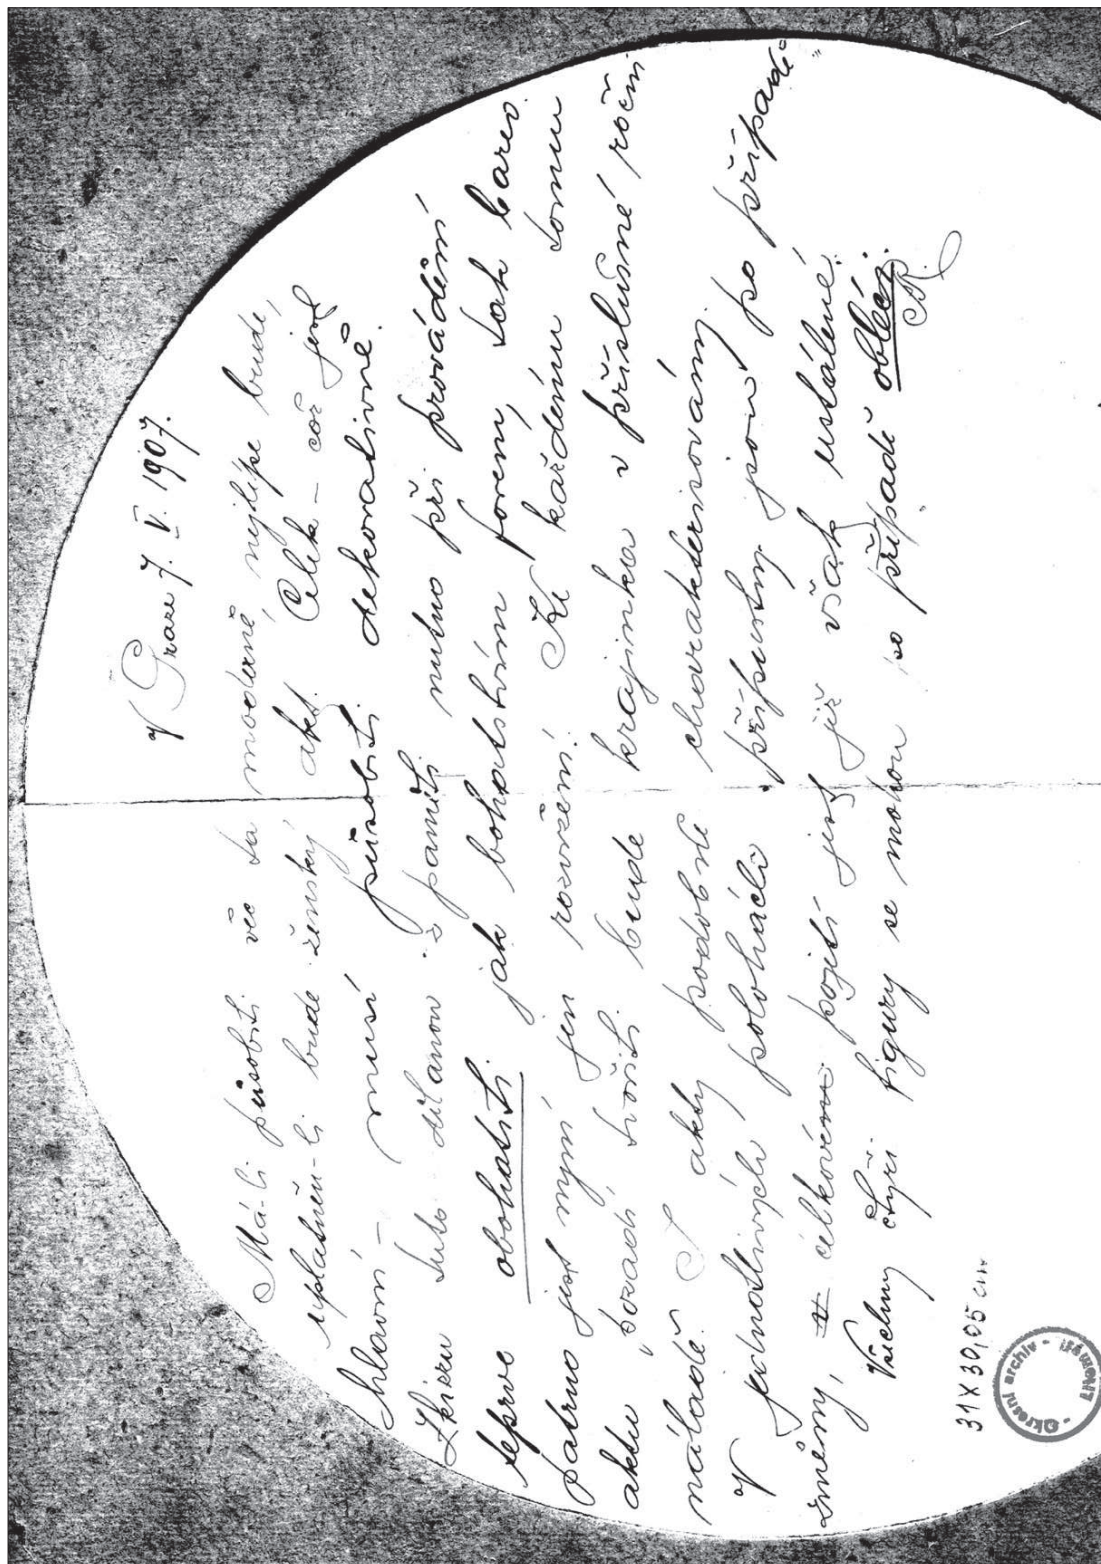 V Praze 7. V. 1907.
Má-li působiti věc ta moderně, nejlépe bude,
uplatněn-li bude ženský akt. Celek – což jest
hlavní – musí působiti dekorativně.
Skizzu tuto dlanou v paměti nutno při provádění
teprve obohatiti jak bohatstvím forem, tak barev.
Patrno jest mým jen rozvržení. Ke každému tomu
aktu pozadí tvořiti bude krajinka v příslušné roční
náladě. I akty podobně charakterisovány.
V jednotlivých polohách přípustny jsou po případě
změny, v celkovém pojetí jest již však ustálené.
Všechny čtyři figury se mohou po případě obléci.
31 X 30,05 cm
Okresní archiv - Litoměřice